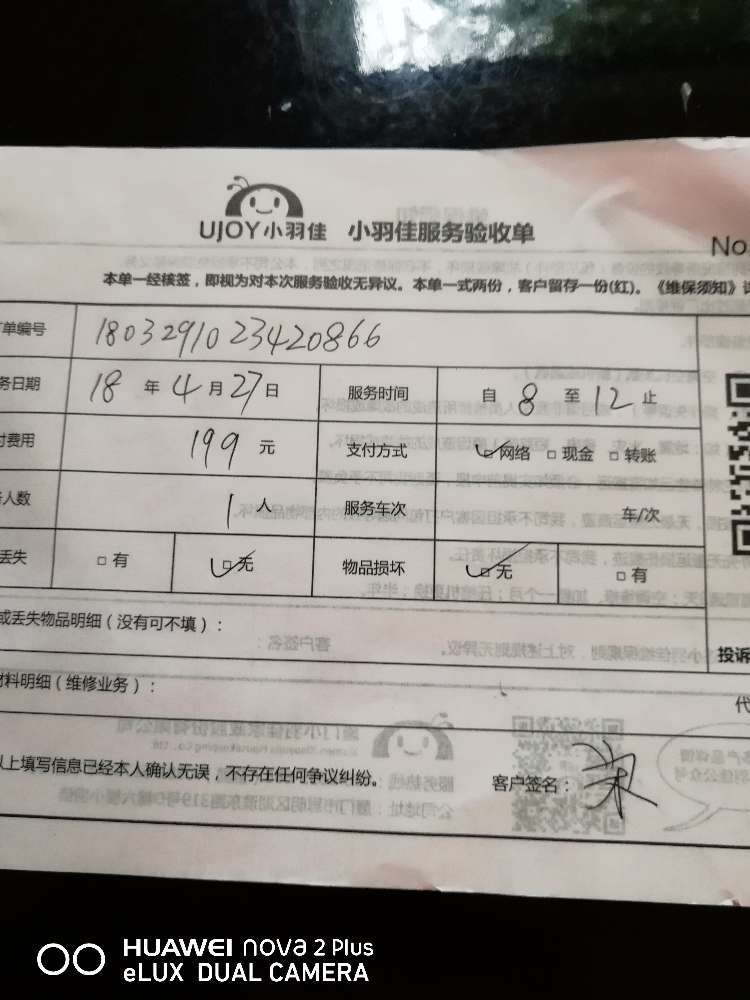 UJOY小羽佳 小羽佳服务验收单
No.
本单一经核签，即视为对本次服务验收无异议。本单一式两份，客户留存一份(红)。《维保须知》
单编号 1803291023420866
务日期 18 年 4 月 27 日 服务时间 自 8 至 12 止
付费用 199 元 支付方式 ☑网络 □现金 □转账
人数 1 人 服务车次 车/次
丢失 □有 ☑无 物品损坏 ☑无 □有
或丢失物品明细（没有可不填）：
投诉
材料明细（维修业务）：
代
以上填写信息已经本人确认无误，不存在任何争议纠纷。 客户签名：
HUAWEI nova 2 Plus
eLUX DUAL CAMERA